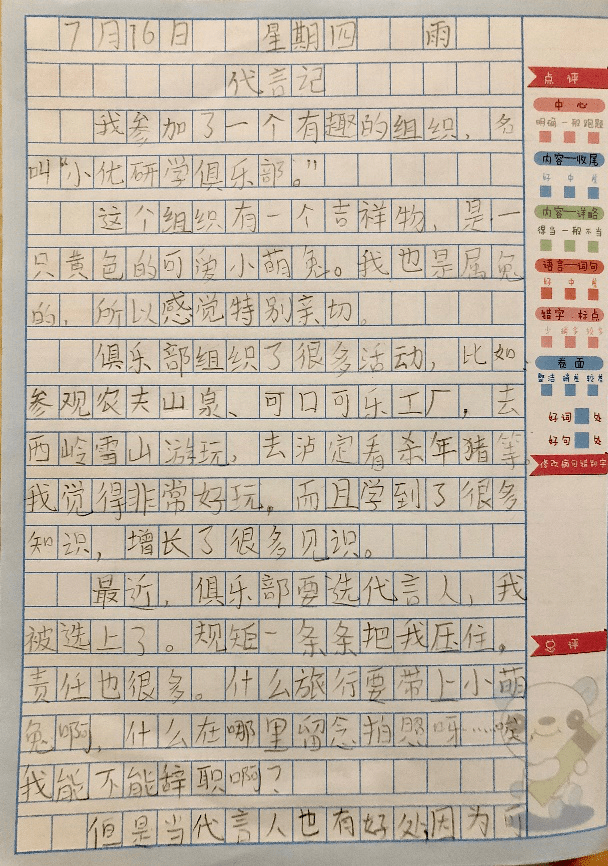 7月16日 星期四 雨
代言记
我参加了一个有趣的组织，名
叫“小优研学俱乐部。”
这个组织有一个吉祥物，是一
只黄色的可爱小萌兔。我也是属兔
的，所以感觉特别亲切。
俱乐部组织了很多活动，比如，
参观农夫山泉、可口可乐工厂，去
西岭雪山游玩，去泸定看杀年猪等，
我觉得非常好玩，而且学到了很多
知识，增长了很多见识。
最近，俱乐部要选代言人，我
被选上了。规矩一条条把我压住，
责任也很多。什么旅行要带上小萌
兔啊，什么在哪里留念拍照呀……唉
我能不能辞职啊？
但是当代言人也有好处，因为可
点评
中心
明确 一般 跑题
内容—收尾
好 中 差
内容—详略
得当 一般 不当
语言—词句
好 中 差
错字 标点
少 较多
卷面
整洁 稍差 较差
好词 处
好句 处
修改病句错别字
总评